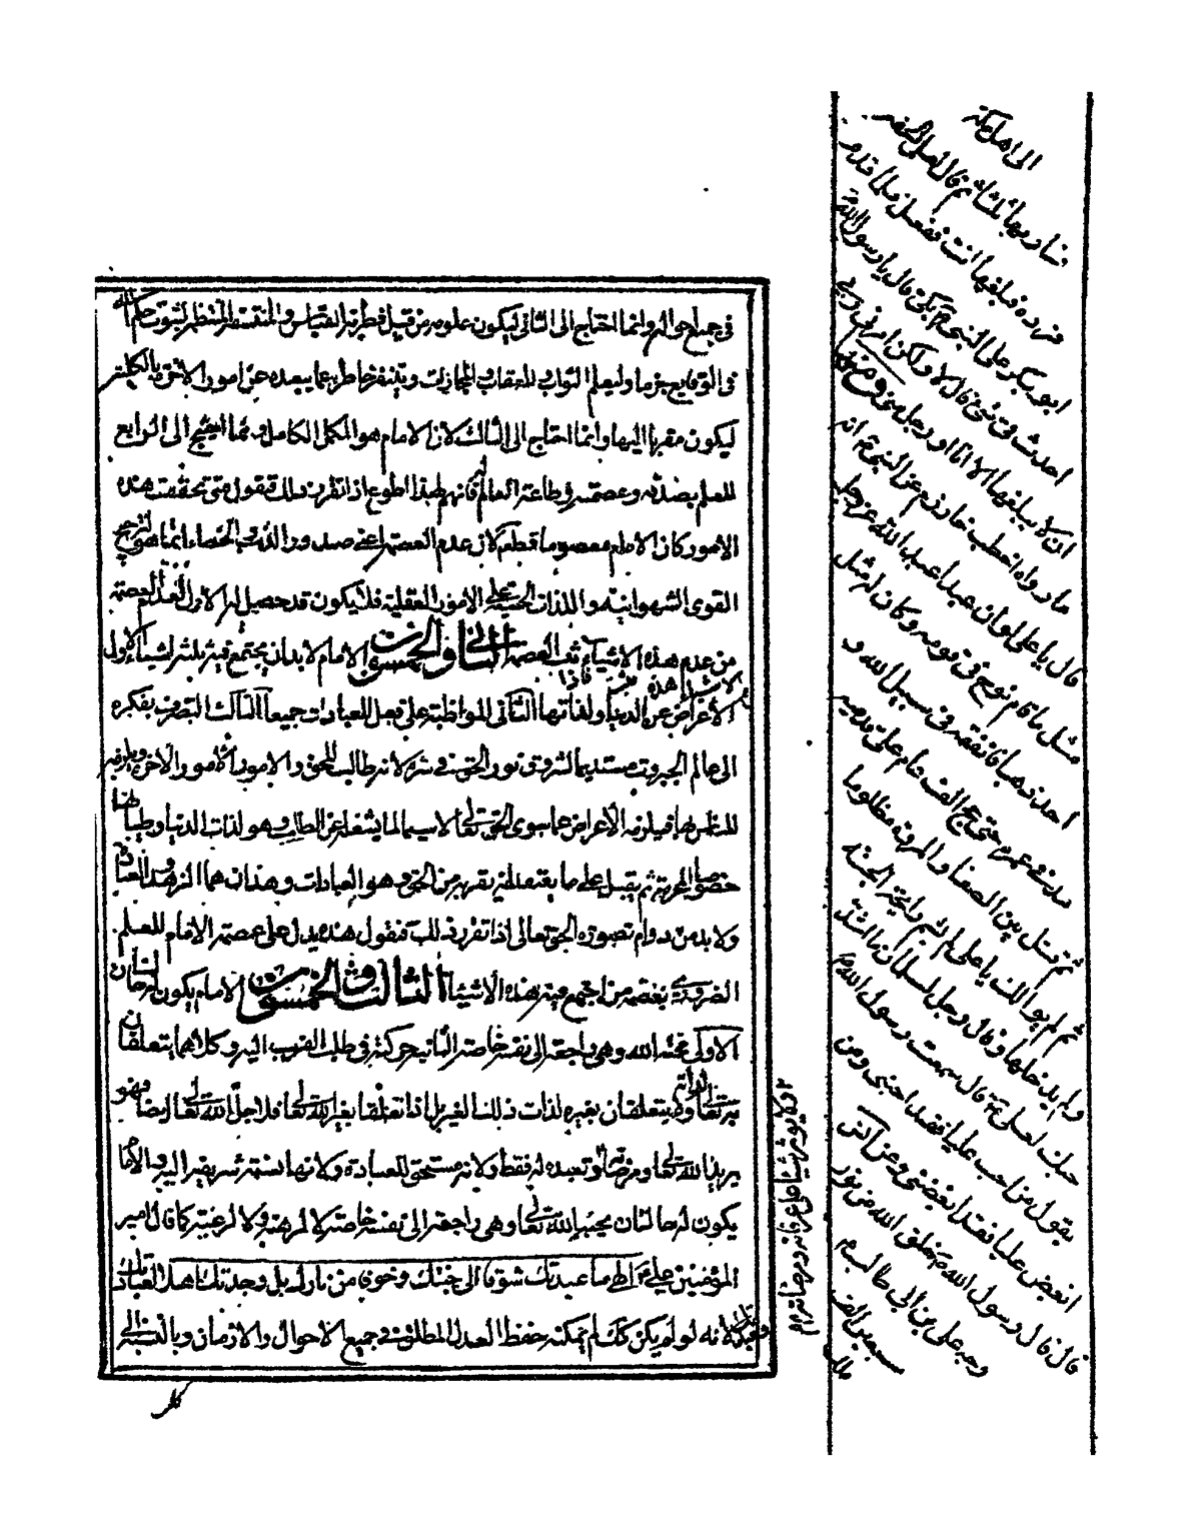 في جميع احواله وانما احتاج الى الثاني ليكون علومه من قبيل فطرية القياس والمنتظر لثبوت حكم الله
في الوقايع جزما وليعلم الثواب والعقاب والمجازات ويتنفر خاطره عما يبعده عن امور الاخرة بالكلية
ليكون مقربا اليها وانما احتاج الى الثالث لان الامام هو المكمل الكامل وانما احتيج الى الرابع
للعلم بصدقه وعصمته واطاعة العالم له فانهم لهذا اطوع اذا تقرر ذلك فنقول متى تحققت هذه
الامور كان الامام معصوما قطعا لان عدم العصمة اعني صدور الذنب والخطاء انما هو لترجيح
القوى الشهوانية واللذات الحسية على الامور العقلية فلا يكون قد حصل له الاول العدم العصمة
من عدم هذه الاشياء ثبت العصمة الثاني والخمسون الامام لا بد ان يجتمع فيه ثلثة اشياء الاول
الاعراض عن الدنيا ولذاتها الثاني المواظبة على فعل العبادات جميعا الثالث التصرف بفكره
الى عالم الجبروت مستديما لشروق نور الحق في سره لانه طالب للحق والامور الاخروية
للناس بها فيلزمه الاعراض عما سوى الحق تعالى لا سيما لما يشغله عن الطلب وهو لذات الدنيا وطيباتها
خصوصا المحرمة ثم يقبل على ما يعتقد انه يقربه من الحق وهو العبادات وهذان هما الزهد والعبادة
ولا بد من دوام تصوره الحق تعالى اذا تقرر ذلك فنقول هذه يدل على عصمة الامام للعلم
الضروري بعصمة من اجتمع فيه هذه الاشياء الثالث والخمسون الامام يكون له حالتان
الاولى محبته الله وهي راجعة الى نفسه خاصة الثانية حركته في طلب القرب اليه وكلاهما يتعلقان
به تعالى لذاته ولا يتعلقان بغيره لذات ذلك الغير بل اذا تعلقا بغير الله تعالى فلاجل الله تعالى ايضا فهو
يريد الله تعالى ومرضاته وتعبده له فقط ولانه مستحق للعبادة ولانها نسبة شريفة اليه والامام
يكون له حالتان محبة الله تعالى وهي راجعة الى نفسه خاصة لا لرهبة ولا لرغبة كما قال امير
المؤمنين عليه السلام ما عبدتك شوقا الى جنتك ولا خوفا من نارك بل وجدتك اهلا للعبادة
فعبدتك لانه لو لم يكن كذلك لم يمكنه حفظ العدل المطلق في جميع الاحوال والازمان وبالنسبة الى
كل
الى اهل مكة
فسار بها ثلثا ثم قال لعلي
فرده فبلغها انت ففعل فلما قدم
ابو بكر على النبي بكى قال يا رسول الله
احدث في شيء قال لا ولكن امرني ربي
ان لا يبلغها الا انا او رجل مني
ما رواه اخطب خوارزم عن النبي انه
قال يا علي لو ان عبدا عبد الله عز وجل
مثل ما قام نوح في قومه وكان له مثل
احد ذهبا فانفقه في سبيل الله و
مد في عمره حتى حج الف عام على قدميه
ثم قتل بين الصفا والمروة مظلوما
ثم لم يوالك يا علي لم يشم رايحة الجنة
ولم يدخلها وقال رجل لسلمان ما اشد
حبك لعلي قال سمعت رسول الله
يقول من احب عليا فقد احبني ومن
ابغض عليا فقد ابغضني وعن انس
قال قال رسول الله خلق الله من نور
وجه علي بن ابي طالب
سبعين الف
ملك